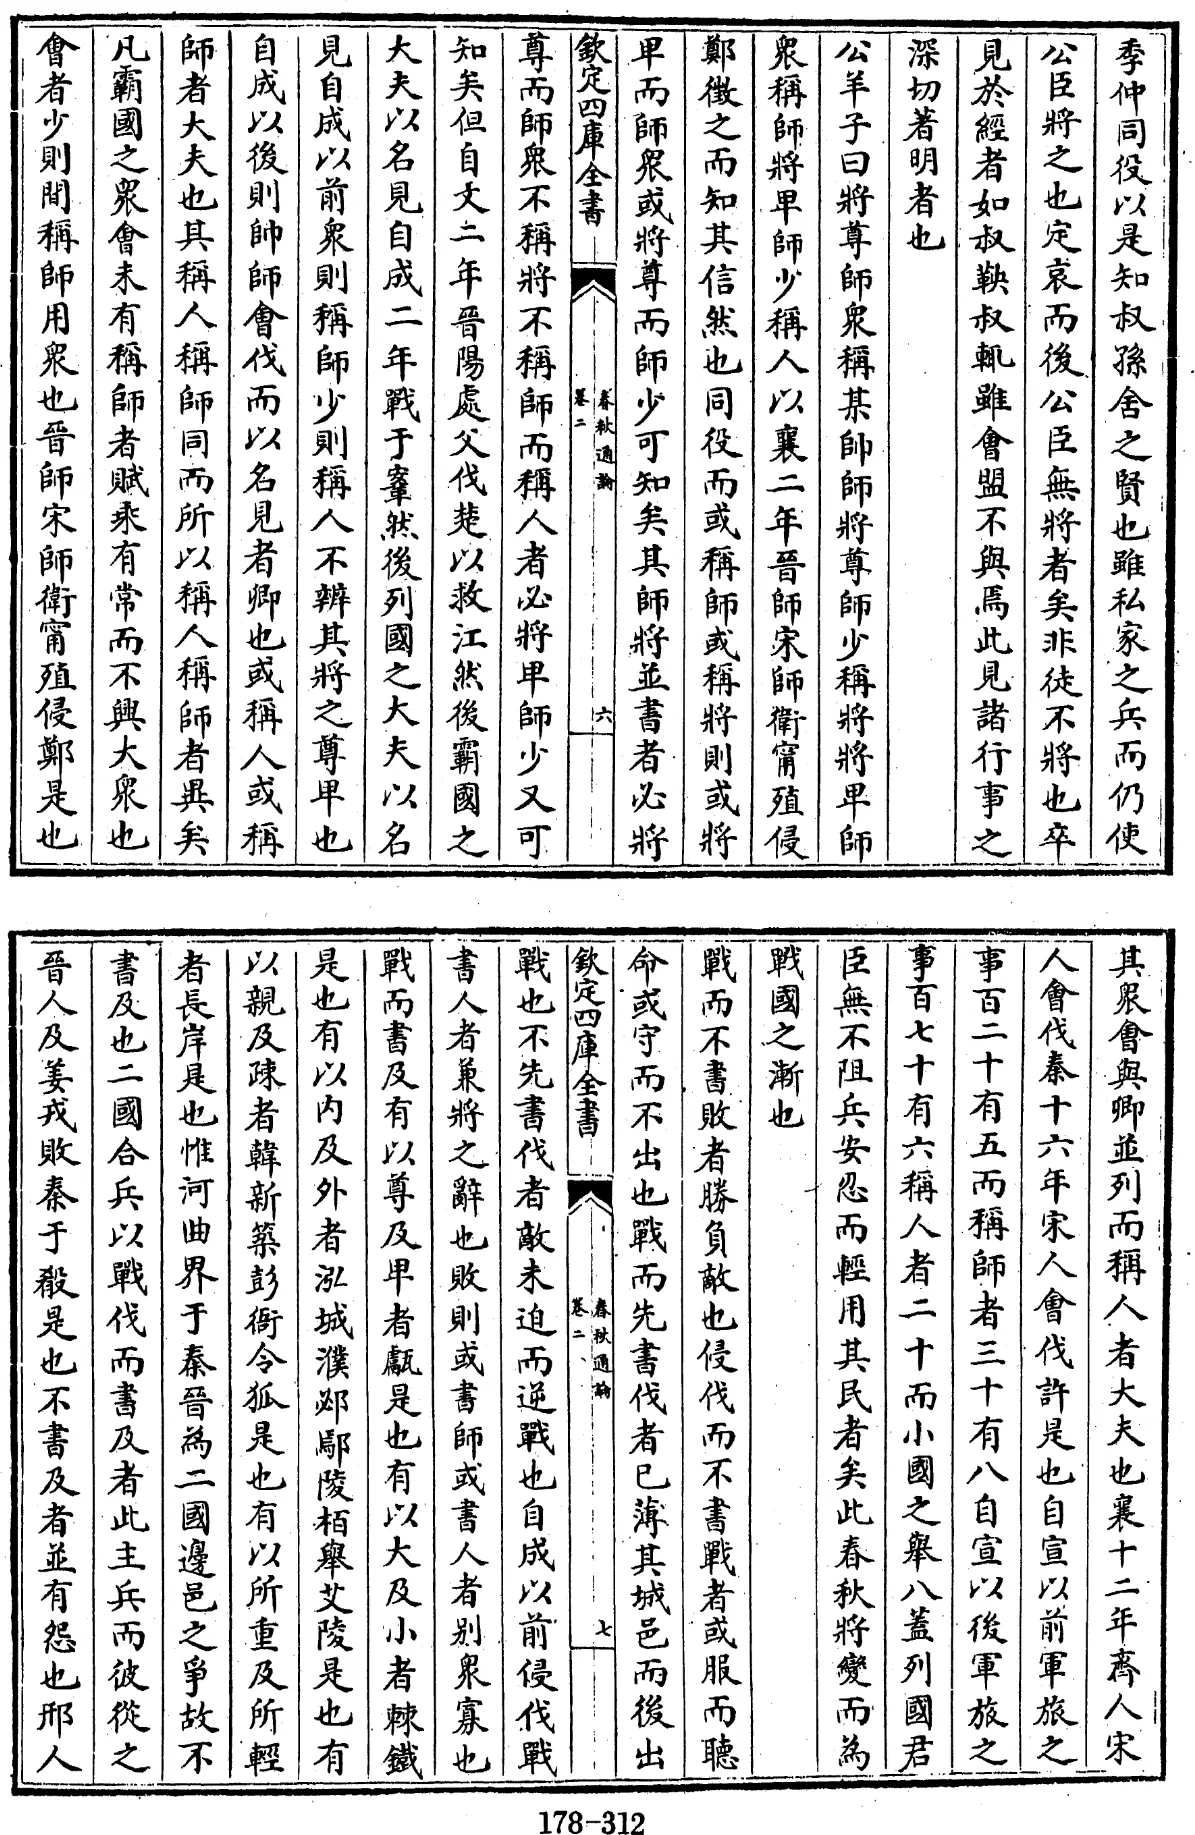 季仲同役以是知叔孫舍之賢也雖私家之兵而仍使
公臣將之也定哀而後公臣無將者矣非徒不將也卒
見於經者如叔鞅叔輒雖會盟不與焉此見諸行事之
深切著明者也
公羊子曰將尊師衆稱某帥師將尊師少稱將將卑師
衆稱師將卑師少稱人以襄二年晉師宋師衛甯殖侵
鄭徵之而知其信然也同役而或稱師或稱將則或將
卑而師衆或將尊而師少可知矣其師將並書者必將
欽定四庫全書
春秋通論
卷二
六
尊而師衆不稱將不稱師而稱人者必將卑師少又可
知矣但自文二年晉陽處父伐楚以救江然後霸國之
大夫以名見自成二年戰于鞌然後列國之大夫以名
見自成以前衆則稱師少則稱人不辨其將之尊卑也
自成以後則帥師會伐而以名見者卿也或稱人或稱
師者大夫也其稱人稱師同而所以稱人稱師者異矣
凡霸國之衆會未有稱師者賦乘有常而不興大衆也
會者少則間稱師用衆也晉師宋師衛甯殖侵鄭是也
其衆會與卿並列而稱人者大夫也襄十二年齊人宋
人會伐秦十六年宋人會伐許是也自宣以前軍旅之
事百二十有五而稱師者三十有八自宣以後軍旅之
事百七十有六稱人者二十而小國之舉八蓋列國君
臣無不阻兵安忍而輕用其民者矣此春秋將變而為
戰國之漸也
戰而不書敗者勝負敵也侵伐而不書戰者或服而聽
命或守而不出也戰而先書伐者已薄其城邑而後出
欽定四庫全書
春秋通論
卷二
七
戰也不先書伐者敵未迫而逆戰也自成以前侵伐戰
書人者兼將之辭也敗則或書師或書人者別衆寡也
戰而書及有以尊及卑者甗是也有以大及小者棘鐵
是也有以内及外者泓城濮邲鄢陵栢舉艾陵是也有
以親及疎者韓新築彭衙令狐是也有以所重及所輕
者長岸是也惟河曲界于秦晉為二國邊邑之爭故不
書及也二國合兵以戰伐而書及者此主兵而彼從之
晉人及姜戎敗秦于殽是也不書及者並有怨也邢人
178-312